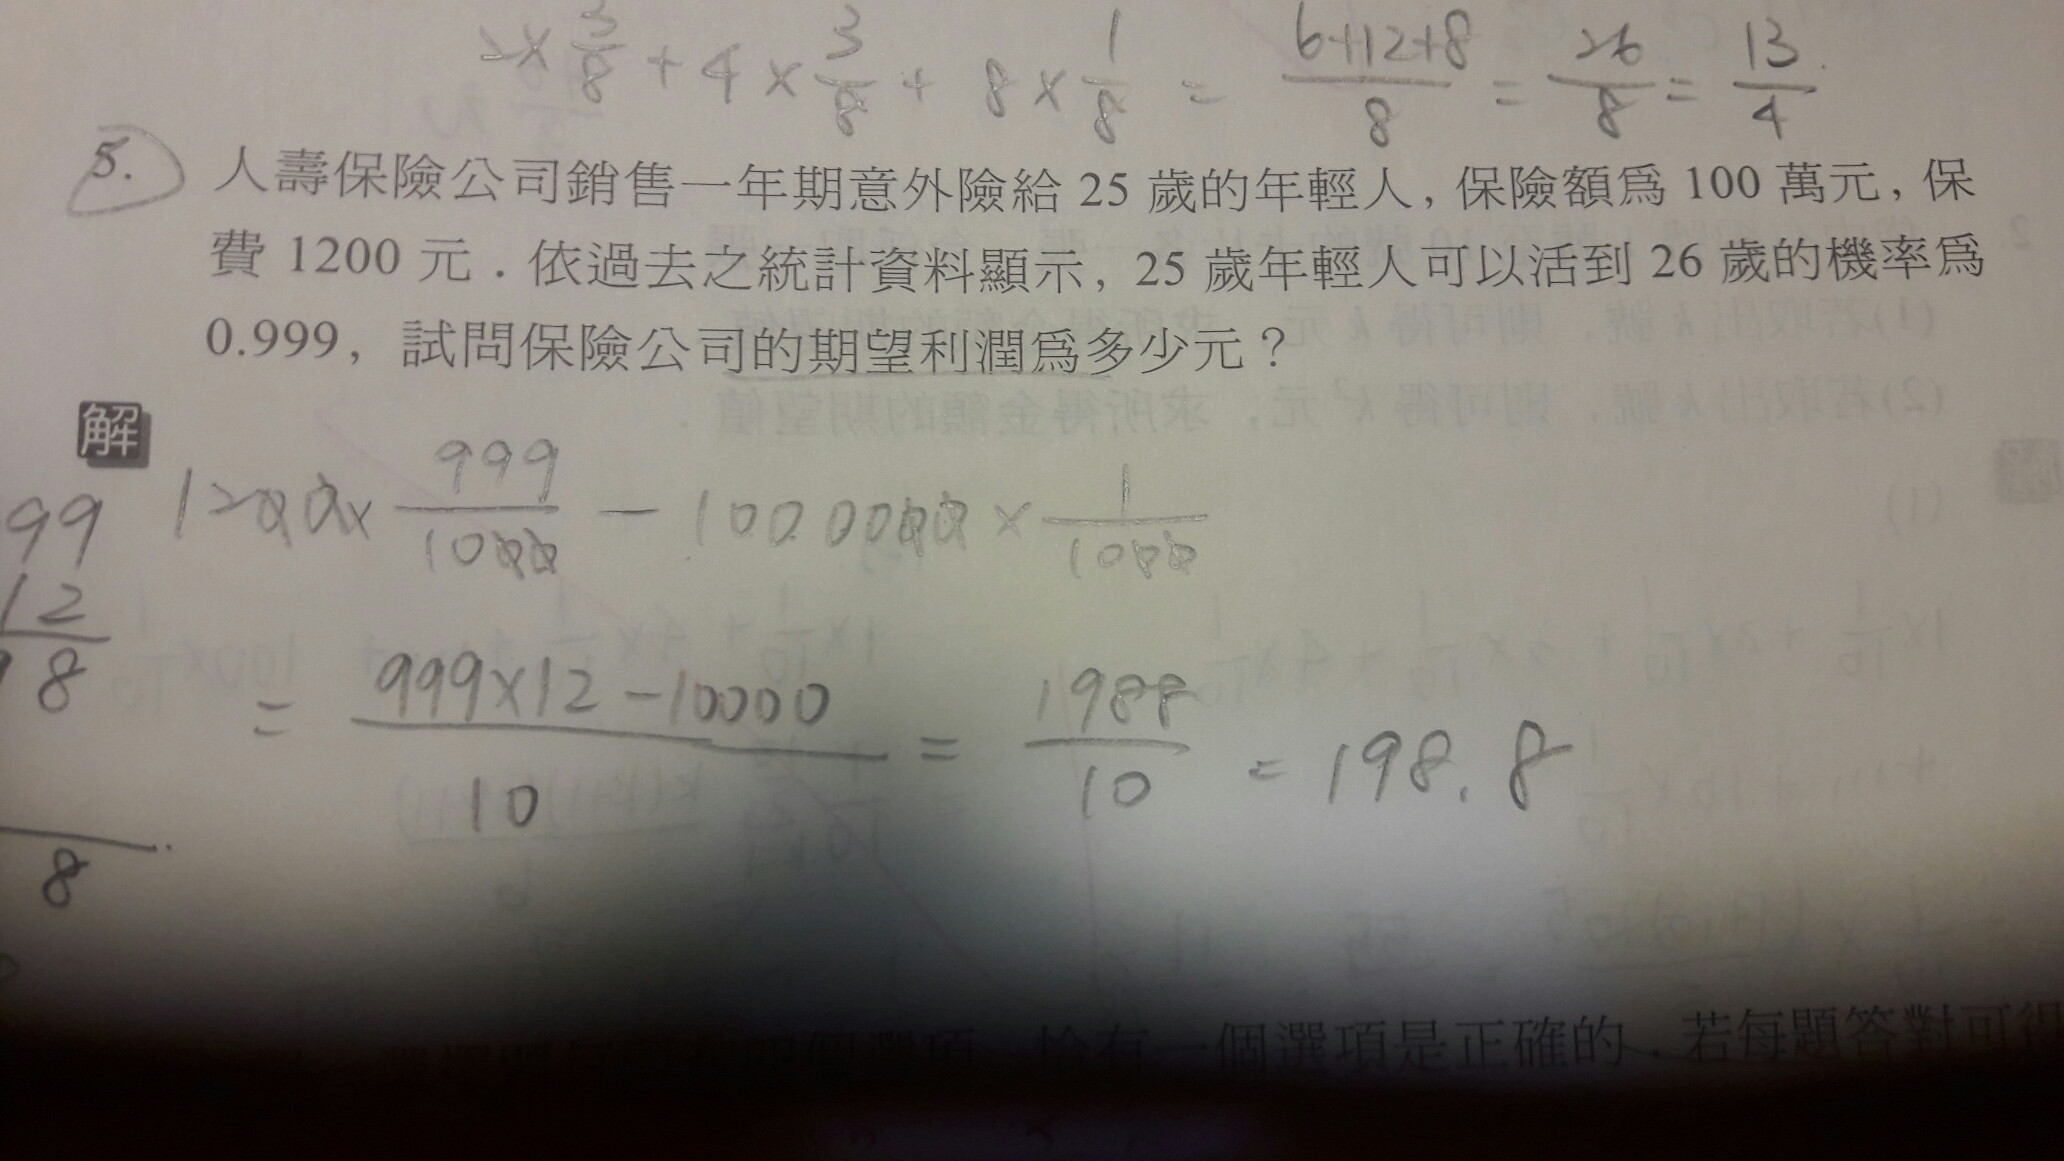 2×3/8+4×3/8+8×1/8=6+12+8/8=26/8=13/4
5. 人壽保險公司銷售一年期意外險給 25 歲的年輕人, 保險額爲 100 萬元, 保
費 1200 元. 依過去之統計資料顯示, 25 歲年輕人可以活到 26 歲的機率爲
0.999, 試問保險公司的期望利潤爲多少元?
解
1200×999/1000-1000000×1/1000
99
12
98
=999×12-10000/10=1988/10=198.8
8
個選項 恰有一個選項是正確的. 若每題答對可得